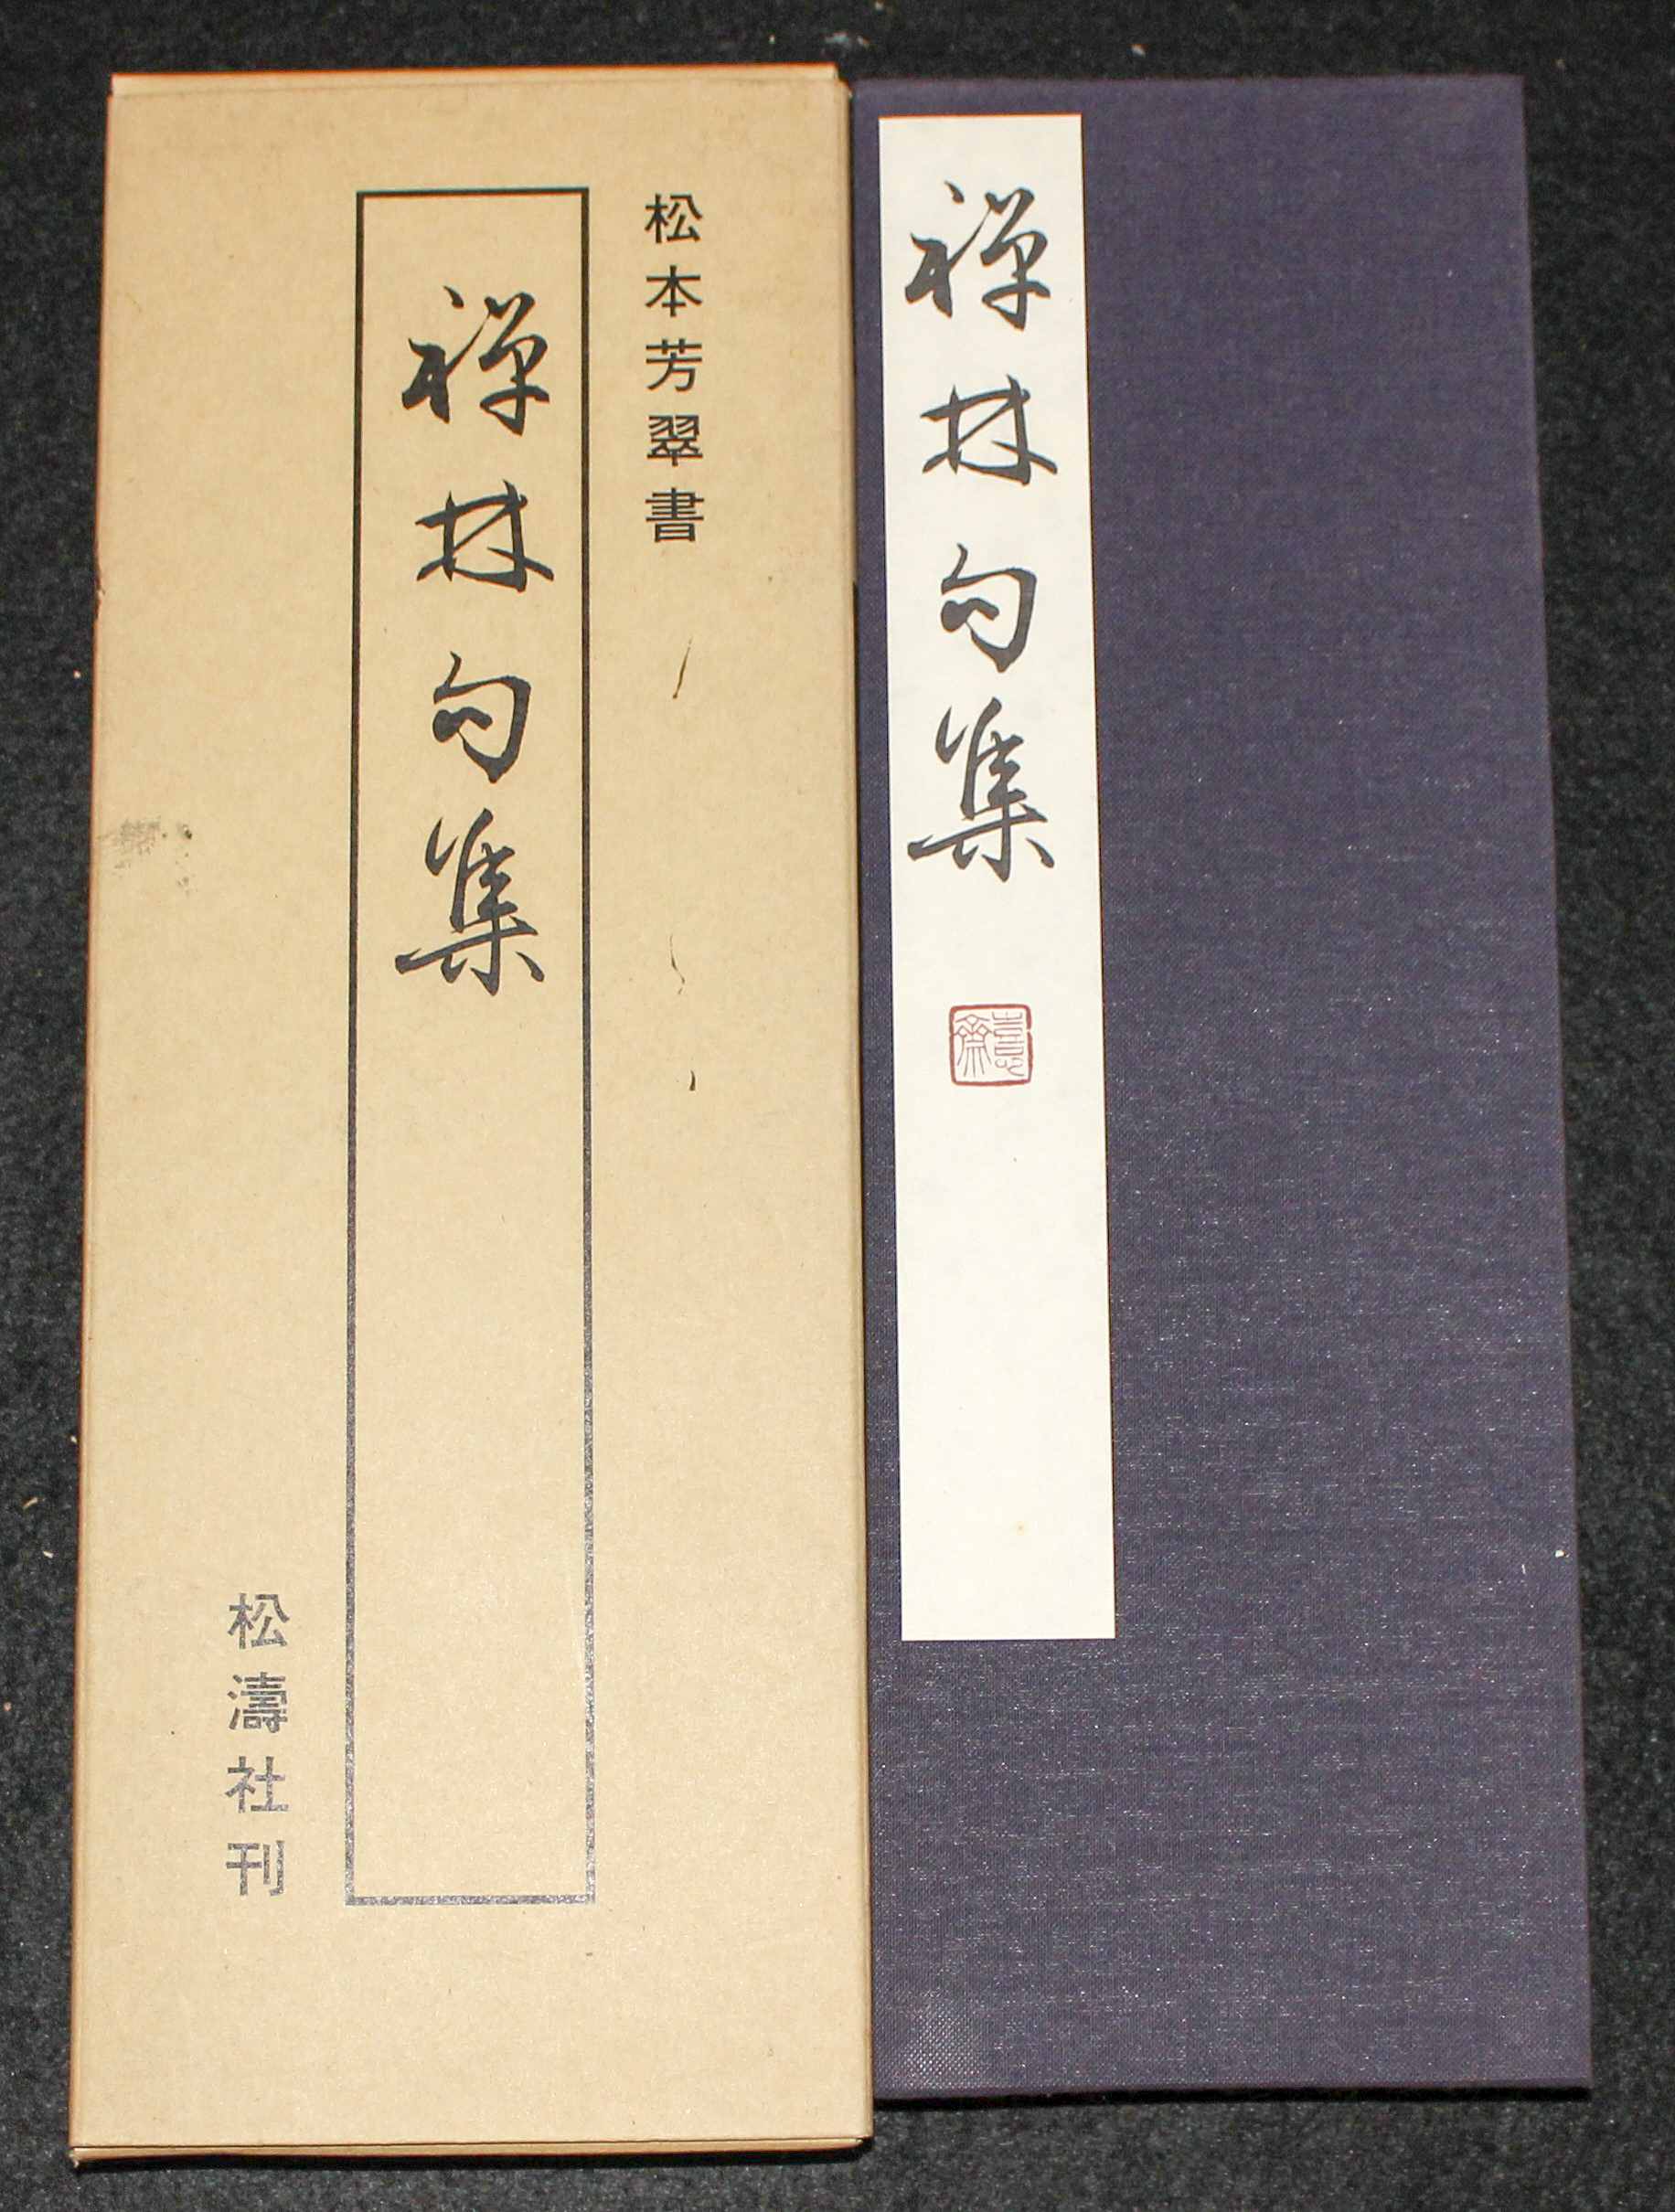 松本芳翠書
禅林句集
松濤社刊
禅林句集